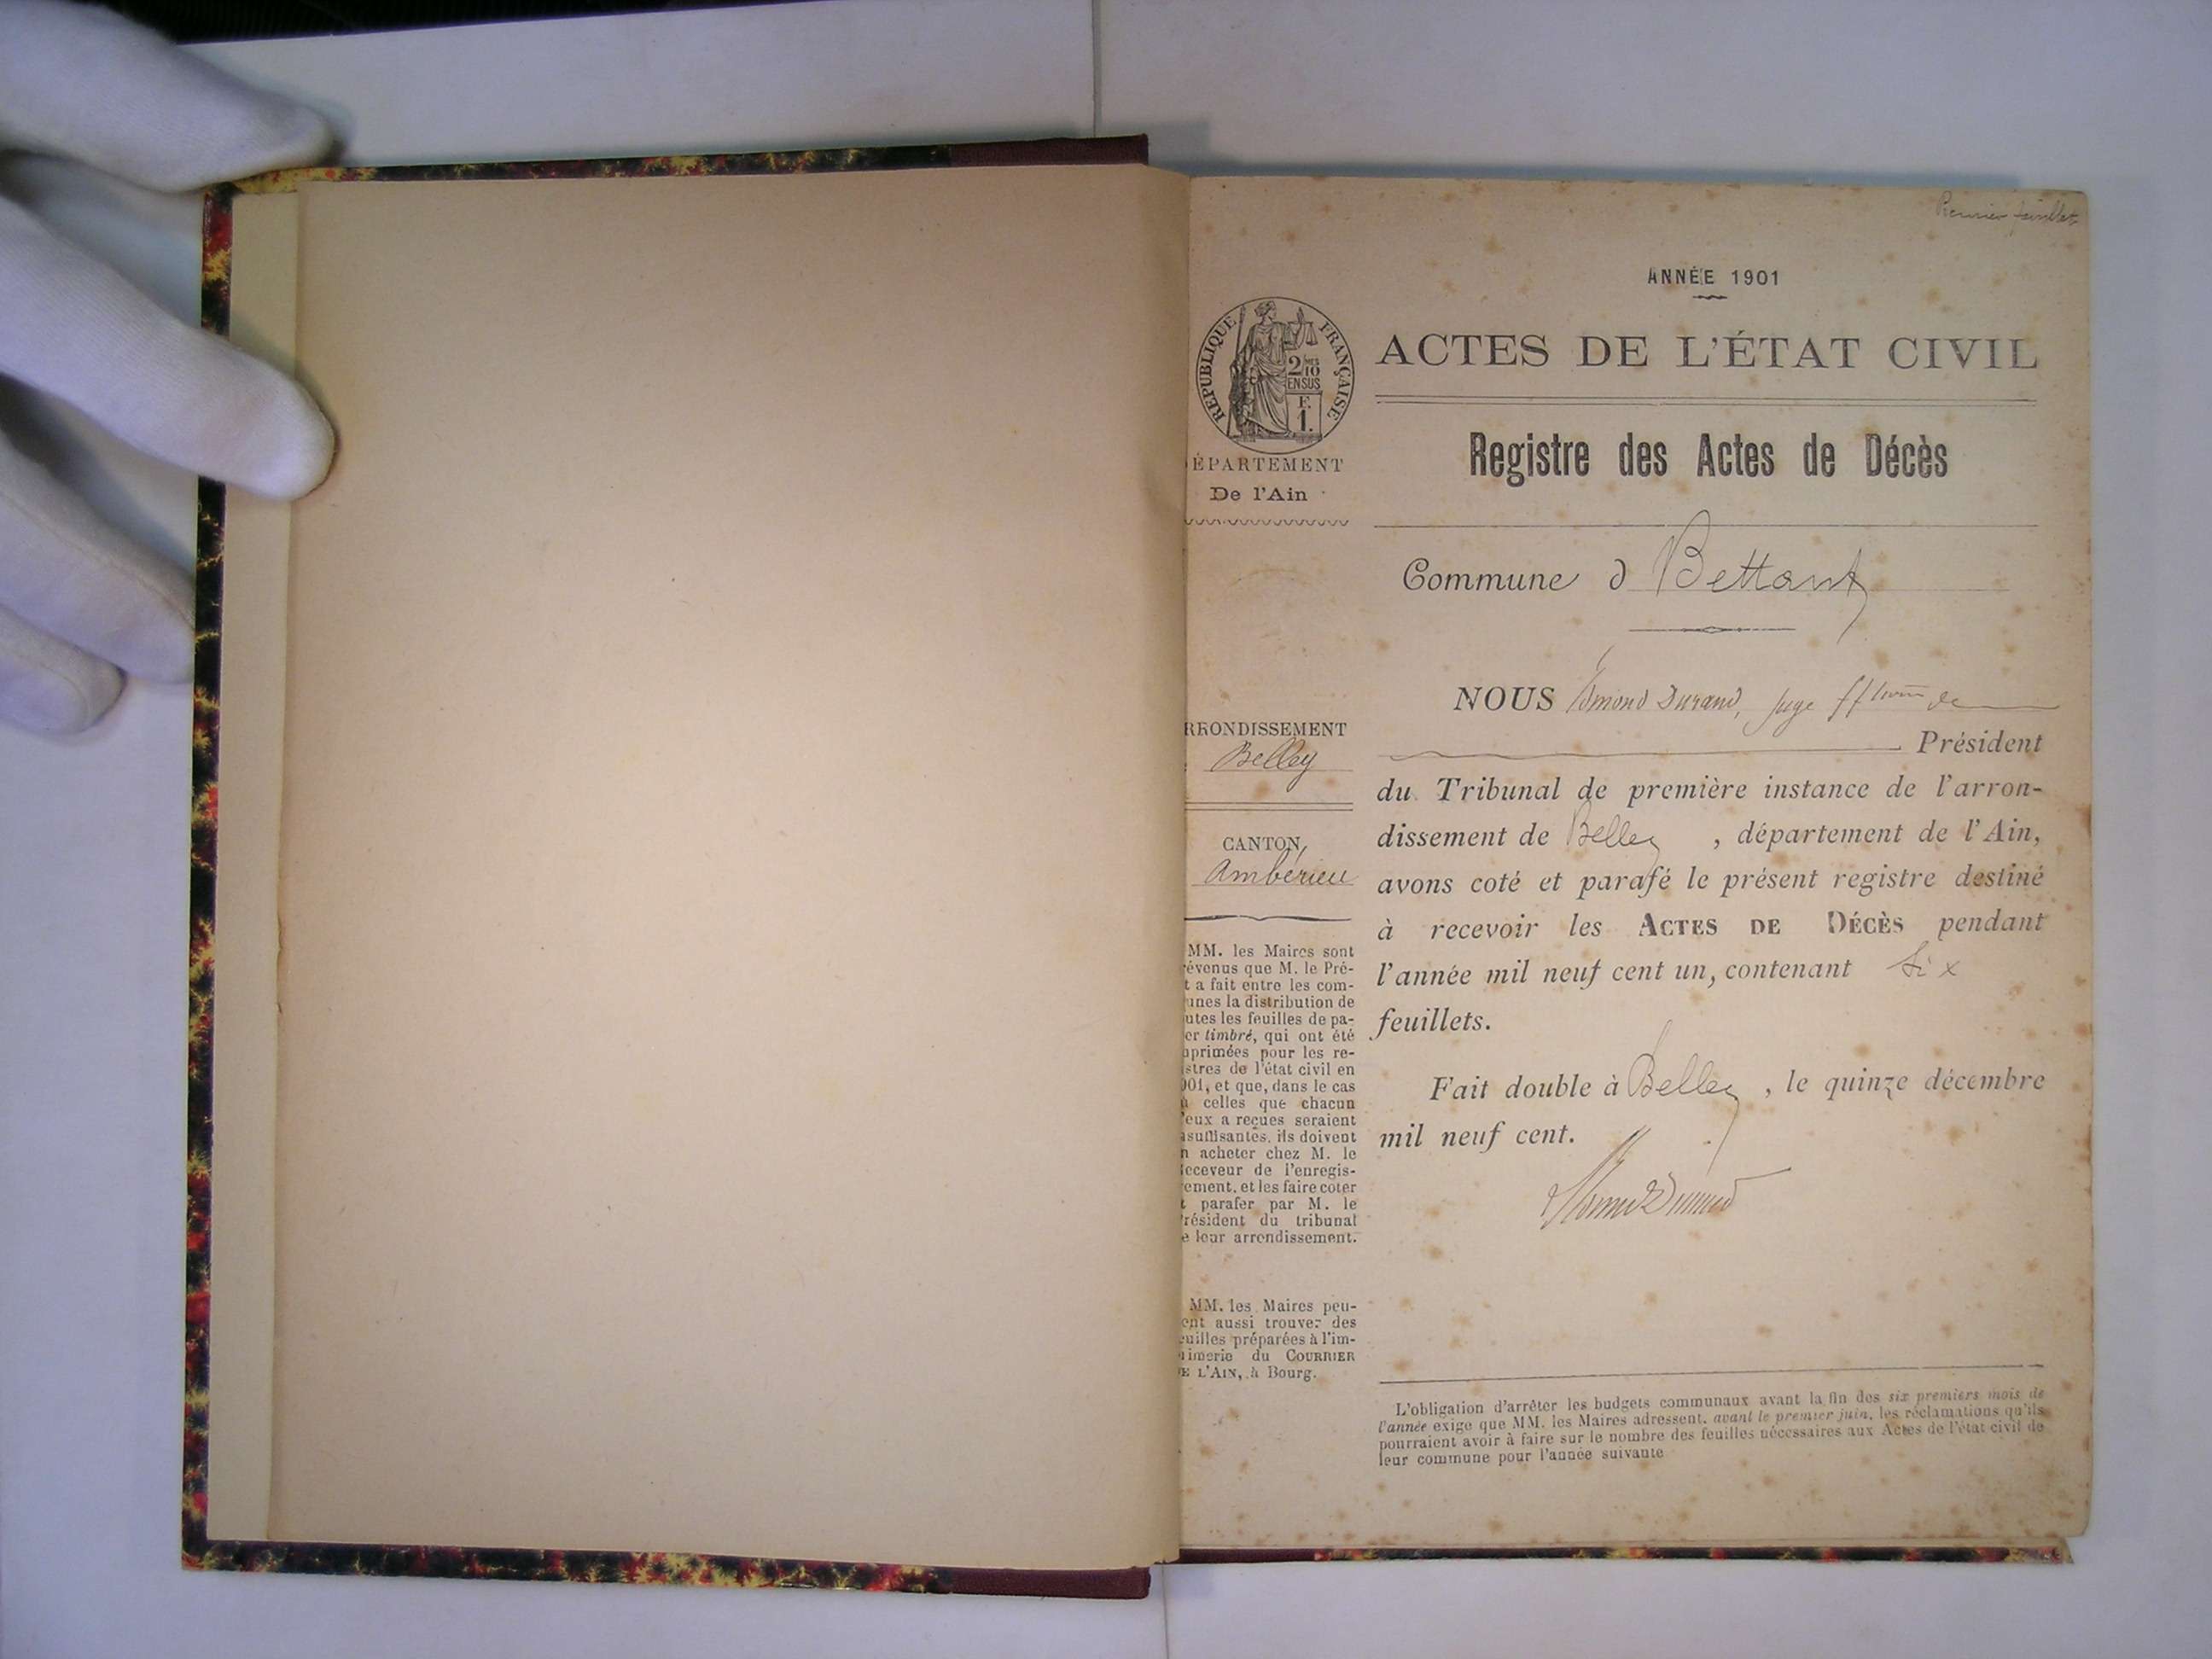 Premier feuillet
ANNÉE 1901
ACTES DE L'ÉTAT CIVIL
Registre des Actes de Décès
Commune d Bettant
NOUS Edmond Durand, Juge ff de
Président
du Tribunal de première instance de l'arron-
dissement de Belley , département de l'Ain,
avons coté et parafé le présent registre destiné
à recevoir les ACTES DE DÉCÈS pendant
l'année mil neuf cent un, contenant Six
feuillets.
Fait double à Belley , le quinze décembre
mil neuf cent.
L'obligation d'arrêter les budgets communaux avant la fin des six premiers mois de
l'année exige que MM. les Maires adressent, avant le premier juin, les réclamations qu'ils
pourraient avoir à faire sur le nombre des feuilles nécessaires aux Actes de l'état civil de
leur commune pour l'année suivante
RÉPUBLIQUE FRANÇAISE
2/10 MES
EN SUS
F.
1.
ÉPARTEMENT
De l'Ain
RRONDISSEMENT
Belley
CANTON
Ambérieu
MM. les Maires sont
évenus que M. le Pré-
t a fait entre les com-
unes la distribution de
utes les feuilles de pa-
er timbré, qui ont été
primées pour les re-
istres de l'état civil en
901, et que, dans le cas
ù celles que chacun
'eux a reçues seraient
suffisantes, ils doivent
n acheter chez M. le
eceveur de l'enregis-
ement, et les faire coter
t parafer par M. le
résident du tribunal
e leur arrondissement.
MM. les Maires peu-
ent aussi trouver des
euilles préparées à l'im-
rimerie du COURRIER
E L'AIN, à Bourg.